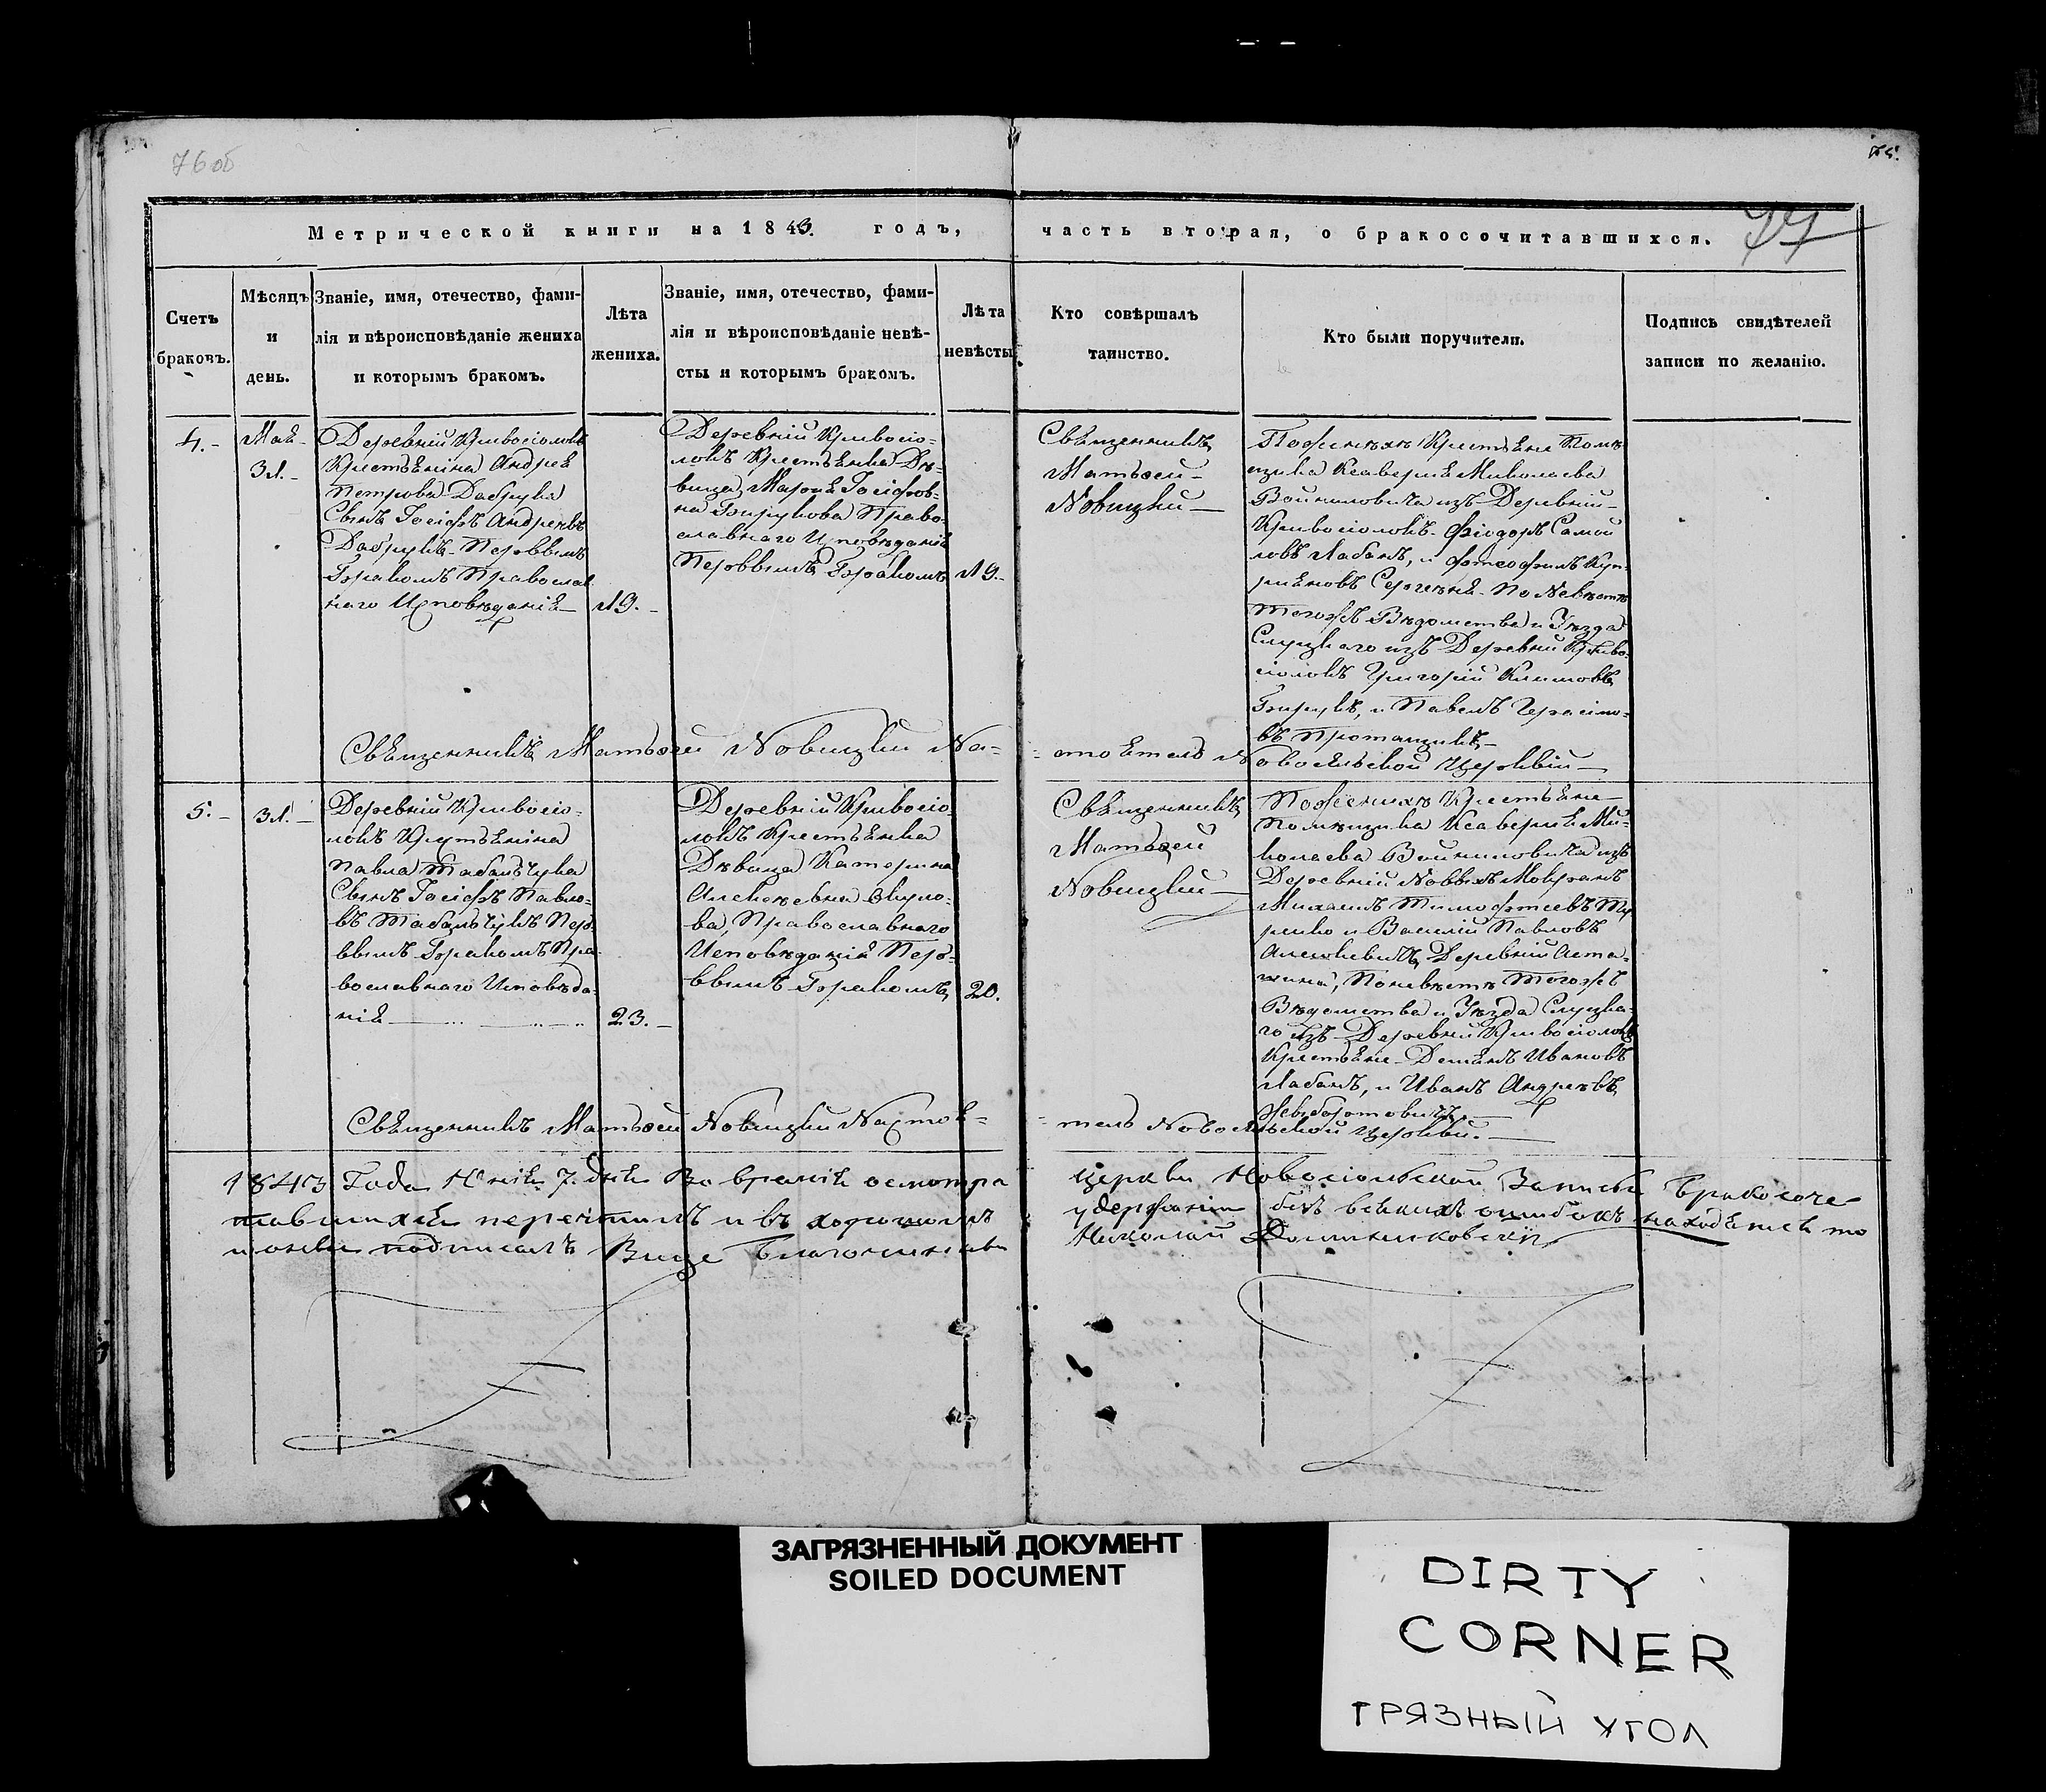 76 об
75.
77
Метрической книги на 1843. годъ, часть вторая, о бракосочитавшихся.
Счетъ браковъ.
Мѣсяцъ и день.
Званіе, имя, отечество, фами-
лія и вѣроисповѣданіе жениха
и которымъ бракомъ.
Лѣта жениха.
Званіе, имя, отечество, фами-
лія и вѣроисповѣданіе невѣ-
сты и которымъ бракомъ.
Лѣта невѣсты
Кто совѣршалъ
таинство.
Кто были поручители.
Подпись свидѣтелей
записи по желанію.
4.-
Маія
31.-
Деревній Кривосіолокъ
Крестьянина Андрея
Петрова Дабрука
Сынъ Іосифъ Андреевъ
Дабрукъ Первымъ
Бракомъ Православ
наго Исповѣданія
19.-
Деревній Кривосіо-
локъ Крестьянка Дѣ-
вица Марья Іосифов-
на Бирукова Право-
славнаго Исповѣданія
Первымъ Бракомъ
19.-
Священникъ
Матѳей
Новицкій
По женихѣ Крестьяне Помѣ
щика Ксаверія Миколаева
Войниловича изъ Деревній
Кривосіолокъ Фіодоръ Самой
ловъ Лабанъ, и
По Невѣстѣ
Тогожъ Вѣдомства и Уѣзда
Слуцкаго изъ Деревній Криво-
сіолокъ Григорій Климовъ
Бирукъ, и Павелъ Герасимо-
въ
Священникъ Матѳей Новицкій На-
стоятель Новосіольской Церквій
5.-
31.-
Деревній Кривосіо-
локъ Крестьянина
Павла
Сынъ Іосифъ Павло-
въ Пер-
вымъ Бракомъ Пра-
вославнаго Исповѣда-
нія
23.-
Деревній Кривосіо-
локъ Крестьянка
Дѣвица Катерина
Алексѣевна
Православнаго
Исповѣданія Пер-
вымъ Бракомъ
20.
Священникъ
Матѳей
Новицкій
По женихѣ Крестьяне
Помѣщика Ксаверія Ми-
колаева Войниловича изъ
Деревній Новыхъ
Михаилъ Тимофеевъ
и Василій Павловъ
Деревній
По невѣстѣ Тогожъ
Вѣдомства и Уѣзда Слуцка-
го изъ Деревній Кривосіолокъ
Крестьяне Демьянъ Ивановъ
Лабанъ, и Иванъ Андреевъ
Священникъ Матѳей Новицкій Настоя-
тель Новосіольской Церкви.
1843 Года Юнія 7 дня Во время осмотра церкви Новосіольской Записи Бракосоче
тавшихся перечтилъ и въ хорошомъ удержаніи безъ всякихъ ошибокъ находятся то
подписалъ Вице Благочинный Николай
ЗАГРЯЗНЕННЫЙ ДОКУМЕНТ
SOILED DOCUMENT
DIRTY
CORNER
ГРЯЗНЫЙ УГОЛ